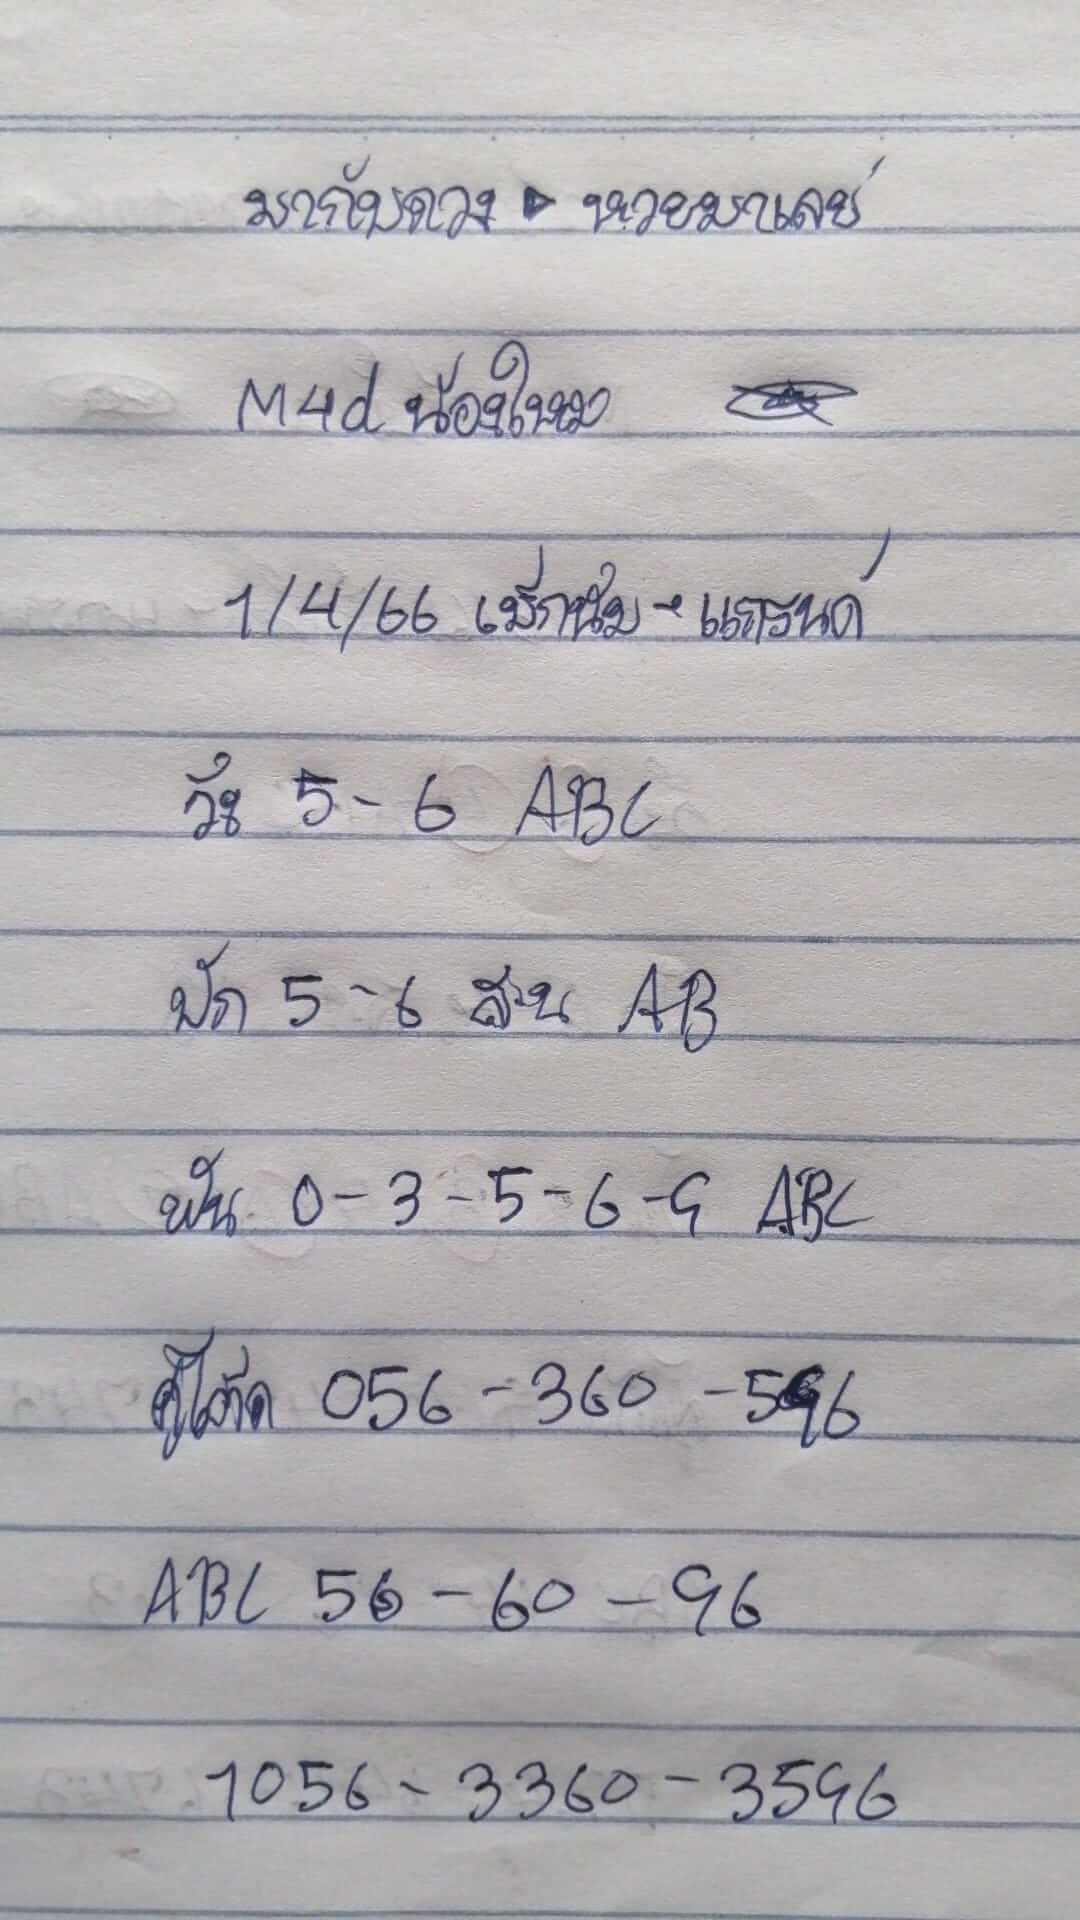 มากับดวง ▶ หวยมาเลย์
M4d น้องใหม่
1/4/66 แม็กนั่ม - แกรนด์
วิ่ง 5 - 6 ABC
ปัก 5 - 6 สิบ AB
ฟัน 0 - 3 - 5 - 6 - 9 ABC
คู่โต๊ด 056 - 360 - 596
ABC 56 - 60 - 96
1056 - 3360 - 3596